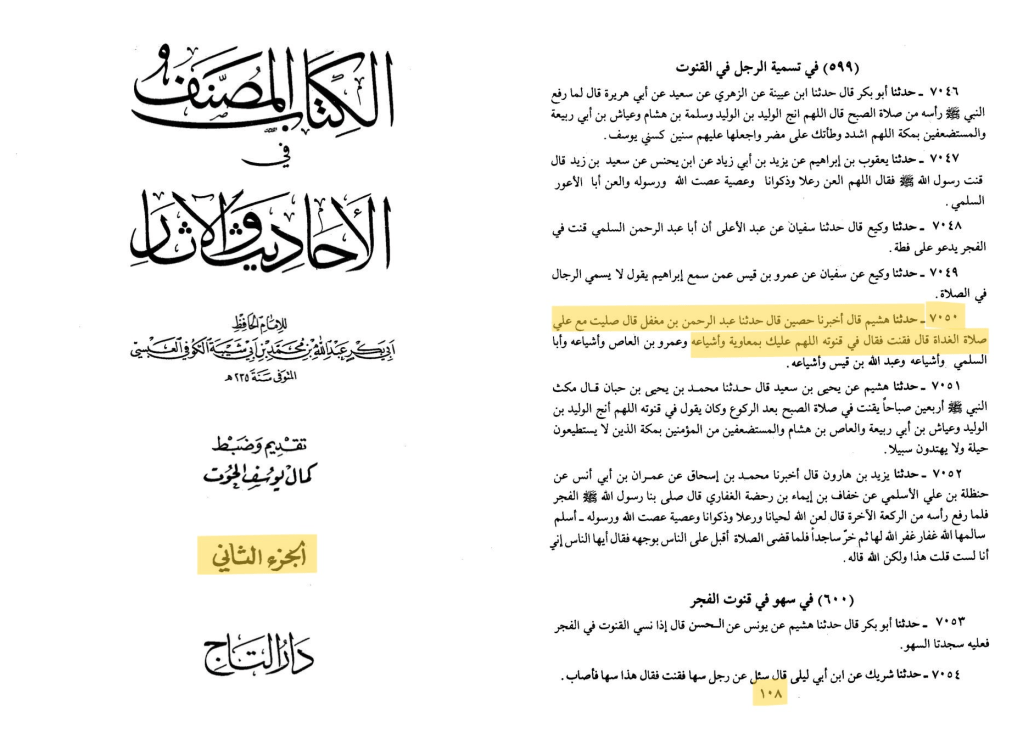 (٥٩٩) في تسمية الرجل في القنوت
٧٠٤٦ ـ حدثنا أبو بكر قال حدثنا ابن عيينة عن الزهري عن سعيد عن أبي هريرة قال لما رفع
النبي ﷺ رأسه من صلاة الصبح قال اللهم انج الوليد بن الوليد وسلمة بن هشام وعياش بن أبي ربيعة
والمستضعفين بمكة اللهم اشدد وطأتك على مضر واجعلها عليهم سنين كسني يوسف.
٧٠٤٧ ـ حدثنا يعقوب بن إبراهيم عن يزيد بن أبي زياد عن ابن يحنس عن سعيد بن زيد قال
قنت رسول الله ﷺ فقال اللهم العن رعلا وذكوانا وعصية عصت الله ورسوله والعن أبا الأعور
السلمي.
٧٠٤٨ ـ حدثنا وكيع قال حدثنا سفيان عن عبد الأعلى أن أبا عبد الرحمن السلمي قنت في
الفجر يدعو على قطة.
٧٠٤٩ ـ حدثنا وكيع عن سفيان عن عمرو بن قيس عمن سمع إبراهيم يقول لا يسمي الرجال
في الصلاة.
٧٠٥٠ ـ حدثنا هشيم قال أخبرنا حصين قال حدثنا عبد الرحمن بن مغفل قال صليت مع علي
صلاة الغداة قال فقنت فقال في قنوته اللهم عليك بمعاوية وأشياعه وعمرو بن العاص وأشياعه وأبا
السلمي وأشياعه وعبد الله بن قيس وأشياعه.
٧٠٥١ ـ حدثنا هشيم عن يحيى بن سعيد قال حدثنا محمد بن يحيى بن حبان قال مكث
النبي ﷺ أربعين صباحاً يقنت في صلاة الصبح بعد الركوع وكان يقول في قنوته اللهم أنج الوليد بن
الوليد وعياش بن أبي ربيعة والعاص بن هشام والمستضعفين من المؤمنين بمكة الذين لا يستطيعون
حيلة ولا يهتدون سبيلا.
٧٠٥٢ ـ حدثنا يزيد بن هارون قال أخبرنا محمد بن إسحاق عن عمران بن أبي أنس عن
حنظلة بن علي الأسلمي عن خفاف بن إيماء بن رحضة الغفاري قال صلى بنا رسول الله ﷺ الفجر
فلما رفع رأسه من الركعة الآخرة قال لعن الله لحيانا ورعلا وذكوانا وعصية عصت الله ورسوله ـ أسلم
سالمها الله غفار غفر الله لها ثم خرّ ساجداً فلما قضى الصلاة أقبل على الناس بوجهه فقال أيها الناس إني
أنا لست قلت هذا ولكن الله قاله.
(٦٠٠) في سهو في قنوت الفجر
٧٠٥٣ ـ حدثنا أبو بكر قال حدثنا هشيم عن يونس عن الحسن قال إذا نسي القنوت في الفجر
فعليه سجدتا السهو.
٧٠٥٤ ـ حدثنا شريك عن ابن أبي ليلى قال سئل عن رجل سها فقنت فقال هذا سها فأصاب.
١٠٨
الكتاب المصنف
في
الأحاديث والآثار
للإمام الحافظ
أبي بكر عبد الله بن محمد بن أبي شيبة الكوفي العبسي
المتوفى سنة ٢٣٥ هـ
تقديم وضبط
كمال يوسف الحوت
الجزء الثاني
دار التاج